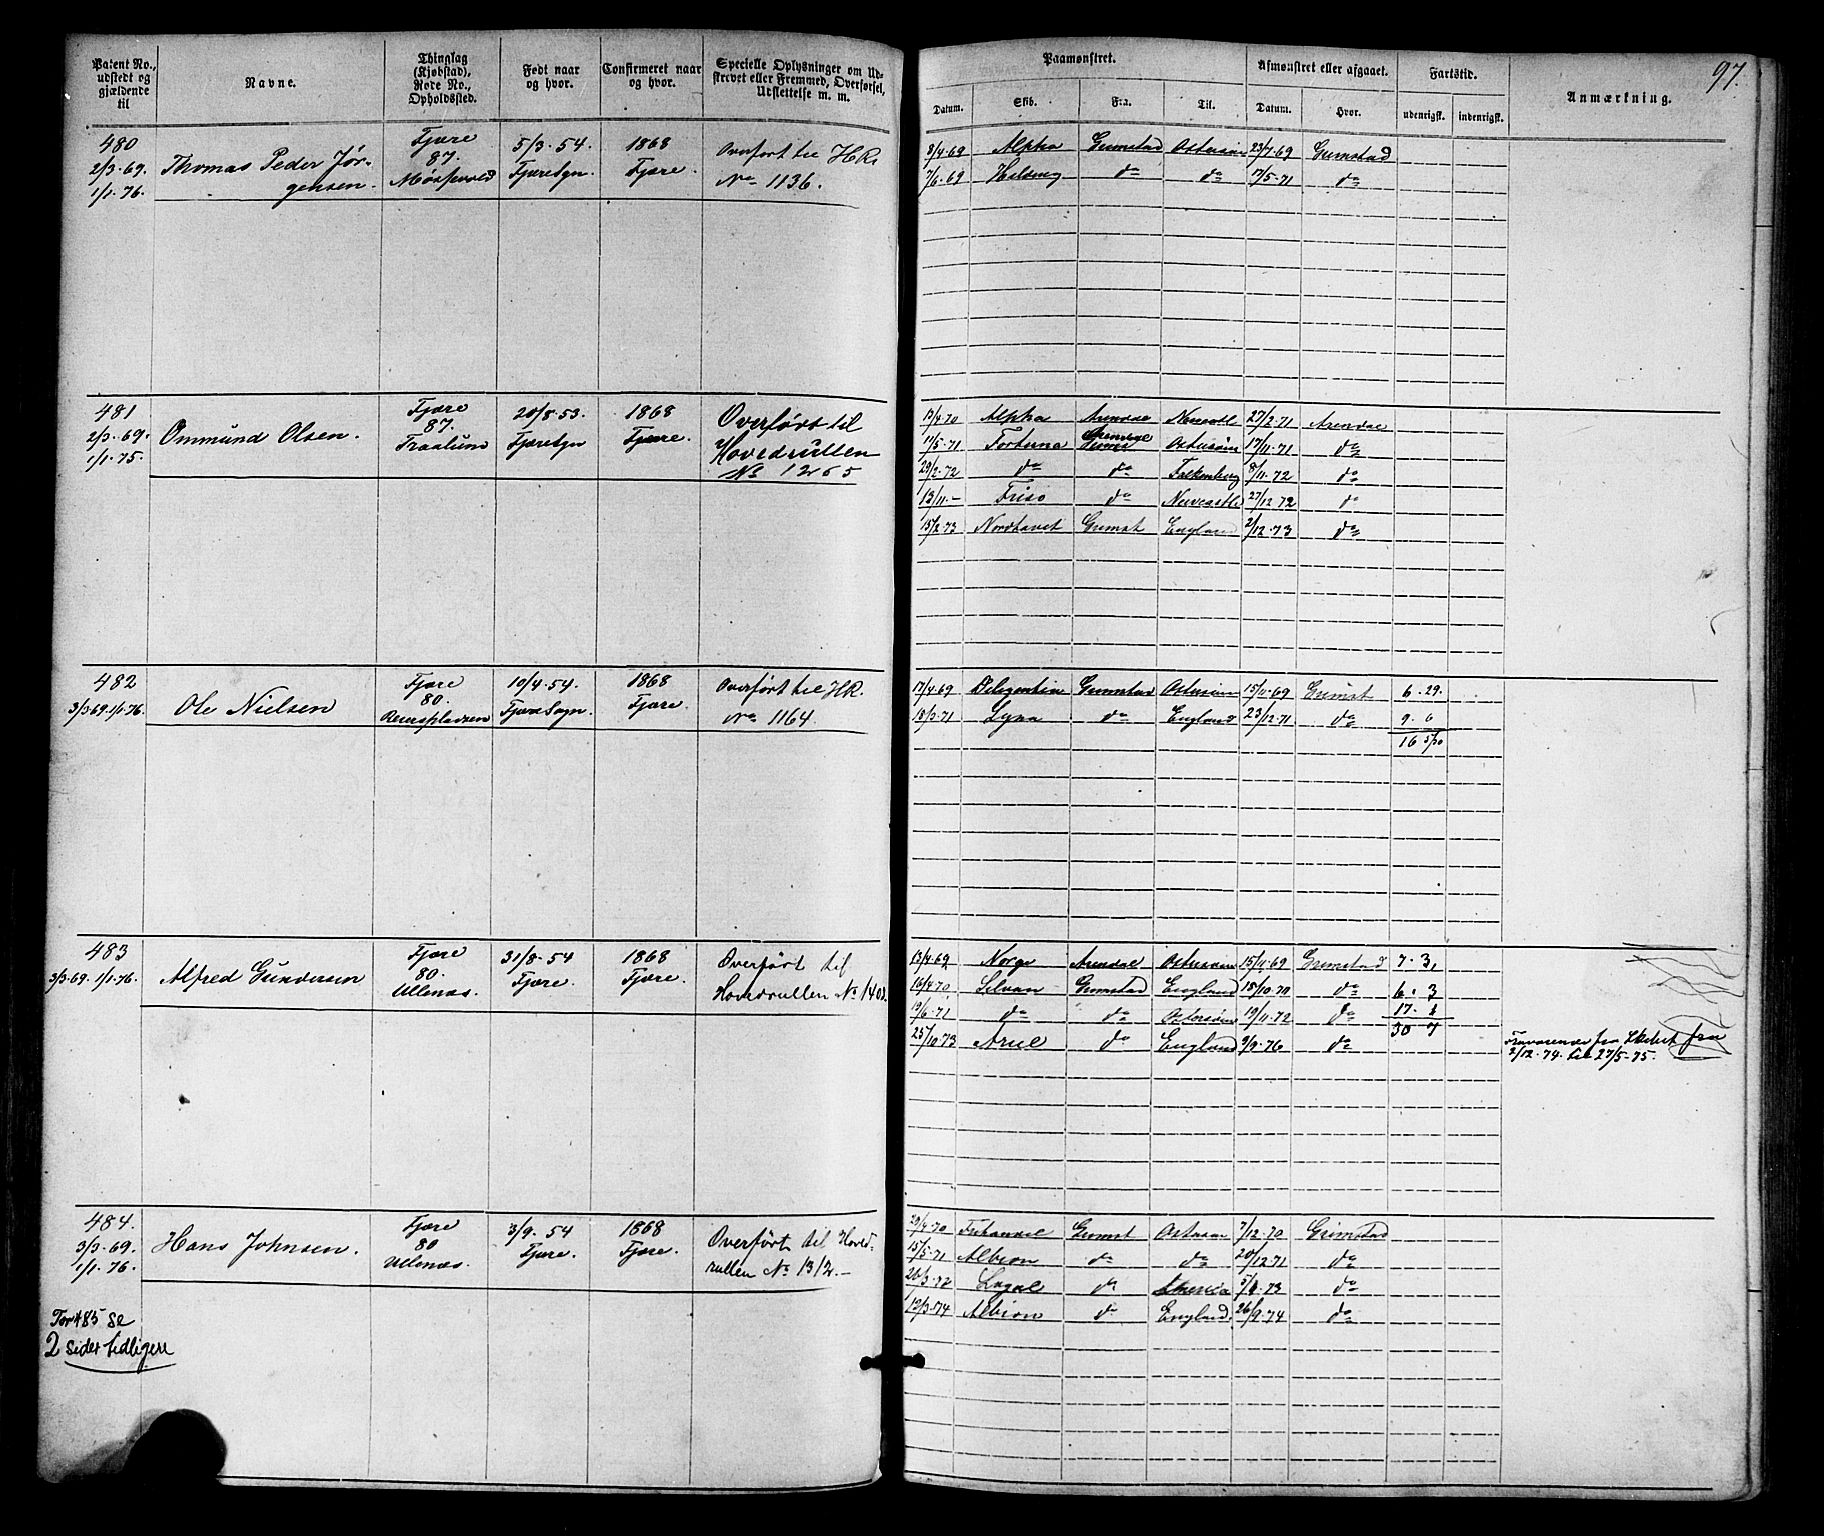 97.
Patent No., udstedt og gjældende til
Navne.
Thinglag (Kjøbstad), Rode No., Opholdssted.
Født naar og hvor.
Confirmeret naar og hvor.
Specielle Oplysninger om Udskrevet eller Fremmed, Overførsel, Udslettelse m. m.
Paamønstret.
Afmønstret eller afgaaet.
Fartstid.
Anmærkning.
Datum. Skib. Fra. Til. Datum. Hvor. udenrigsk. indenrigsk.
480
2/3.69.
1/1.76.
Thomas Peder Jør-
gensen.
Fjære
87.
5/3.54.
Fjære Sgn.
1868
Fjære.
Overført til HR.
No 1136.
8/4.69 Alpha Grimstad Østersøen 23/7.69 Grimstad
7/6.69 do do 17/5.71 do
481
2/3.69.
1/1.75.
Ommund Olsen.
Fjære
87.
Traalum
20/8.53.
Fjære Sgn
1868
Fjære.
Overført til
Hovedrullen
No 1265
17/4.70 Alpha Arendal Newcastle 27/2.71 Arendal
17/5.71 Fortuna Østersøen 17/11.71 do
29/2.72 do do Falkenberg 8/11.72 do
13/11.- Friso do Newcastle 27/12 72 do
15/2.73 Nordhavet Grimst England 2/12.73 do
482
3/3.69. 1/1.76.
Ole Nielsen
Fjære
80.
10/4.54.
Fjære Sogn.
1868
Fjære.
Overført til HR.
No 1164.
17/4.69 Diligentia Grimstad Østersøen 15/11.69 Grimst 6.29.
18/3.71 Lyna do England 23/12.71 do 9.6
16 5/30
483
3/3.69. 1/1.76.
Alfred Gundersen
Fjære
80.
Ullenæs.
31/8.54
Fjære.
1868
Fjære.
Overført til
Hovedrullen No 1403.
13/4.69 Norge Arendal Østersøen 15/11.69 Grimstad 7.3,
16/4.70 Silvan Grimstad England 15/10.70 do 6.3
19/6.71 do do Østersøen 19/11.72 do 17.1
30 7
25/10.73 Ariel do England 9/9.76 do
Fraværende fra Skibet fra
2/12.74. til 27/5.75.
484.
3/3.69.
1/1.76.
Hans Johnsen.
Fjære
80
Ullenæs.
3/9.54
Fjære.
1868
Fjære.
Overført til Hoved-
rullen No 1312.-
29/4.70 Frihandel Grimst Østersøen 7/12.70 Grimstad
15/5.71 Albion do do 20/12.71 do
20/3.72 Logal do 5/1.73 do
12/3.74 Albion do England. 26/9.74 do
For 485 se
2 sider tidligere